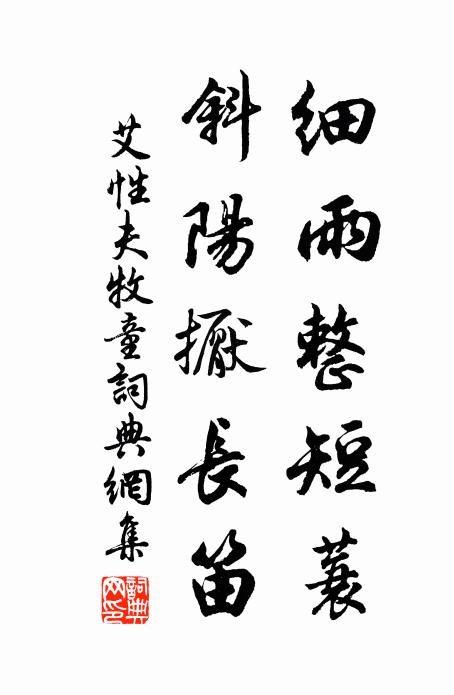 细雨整短蓑
斜陽擫長笛
艾性夫牧童詞典網集
詞典網印